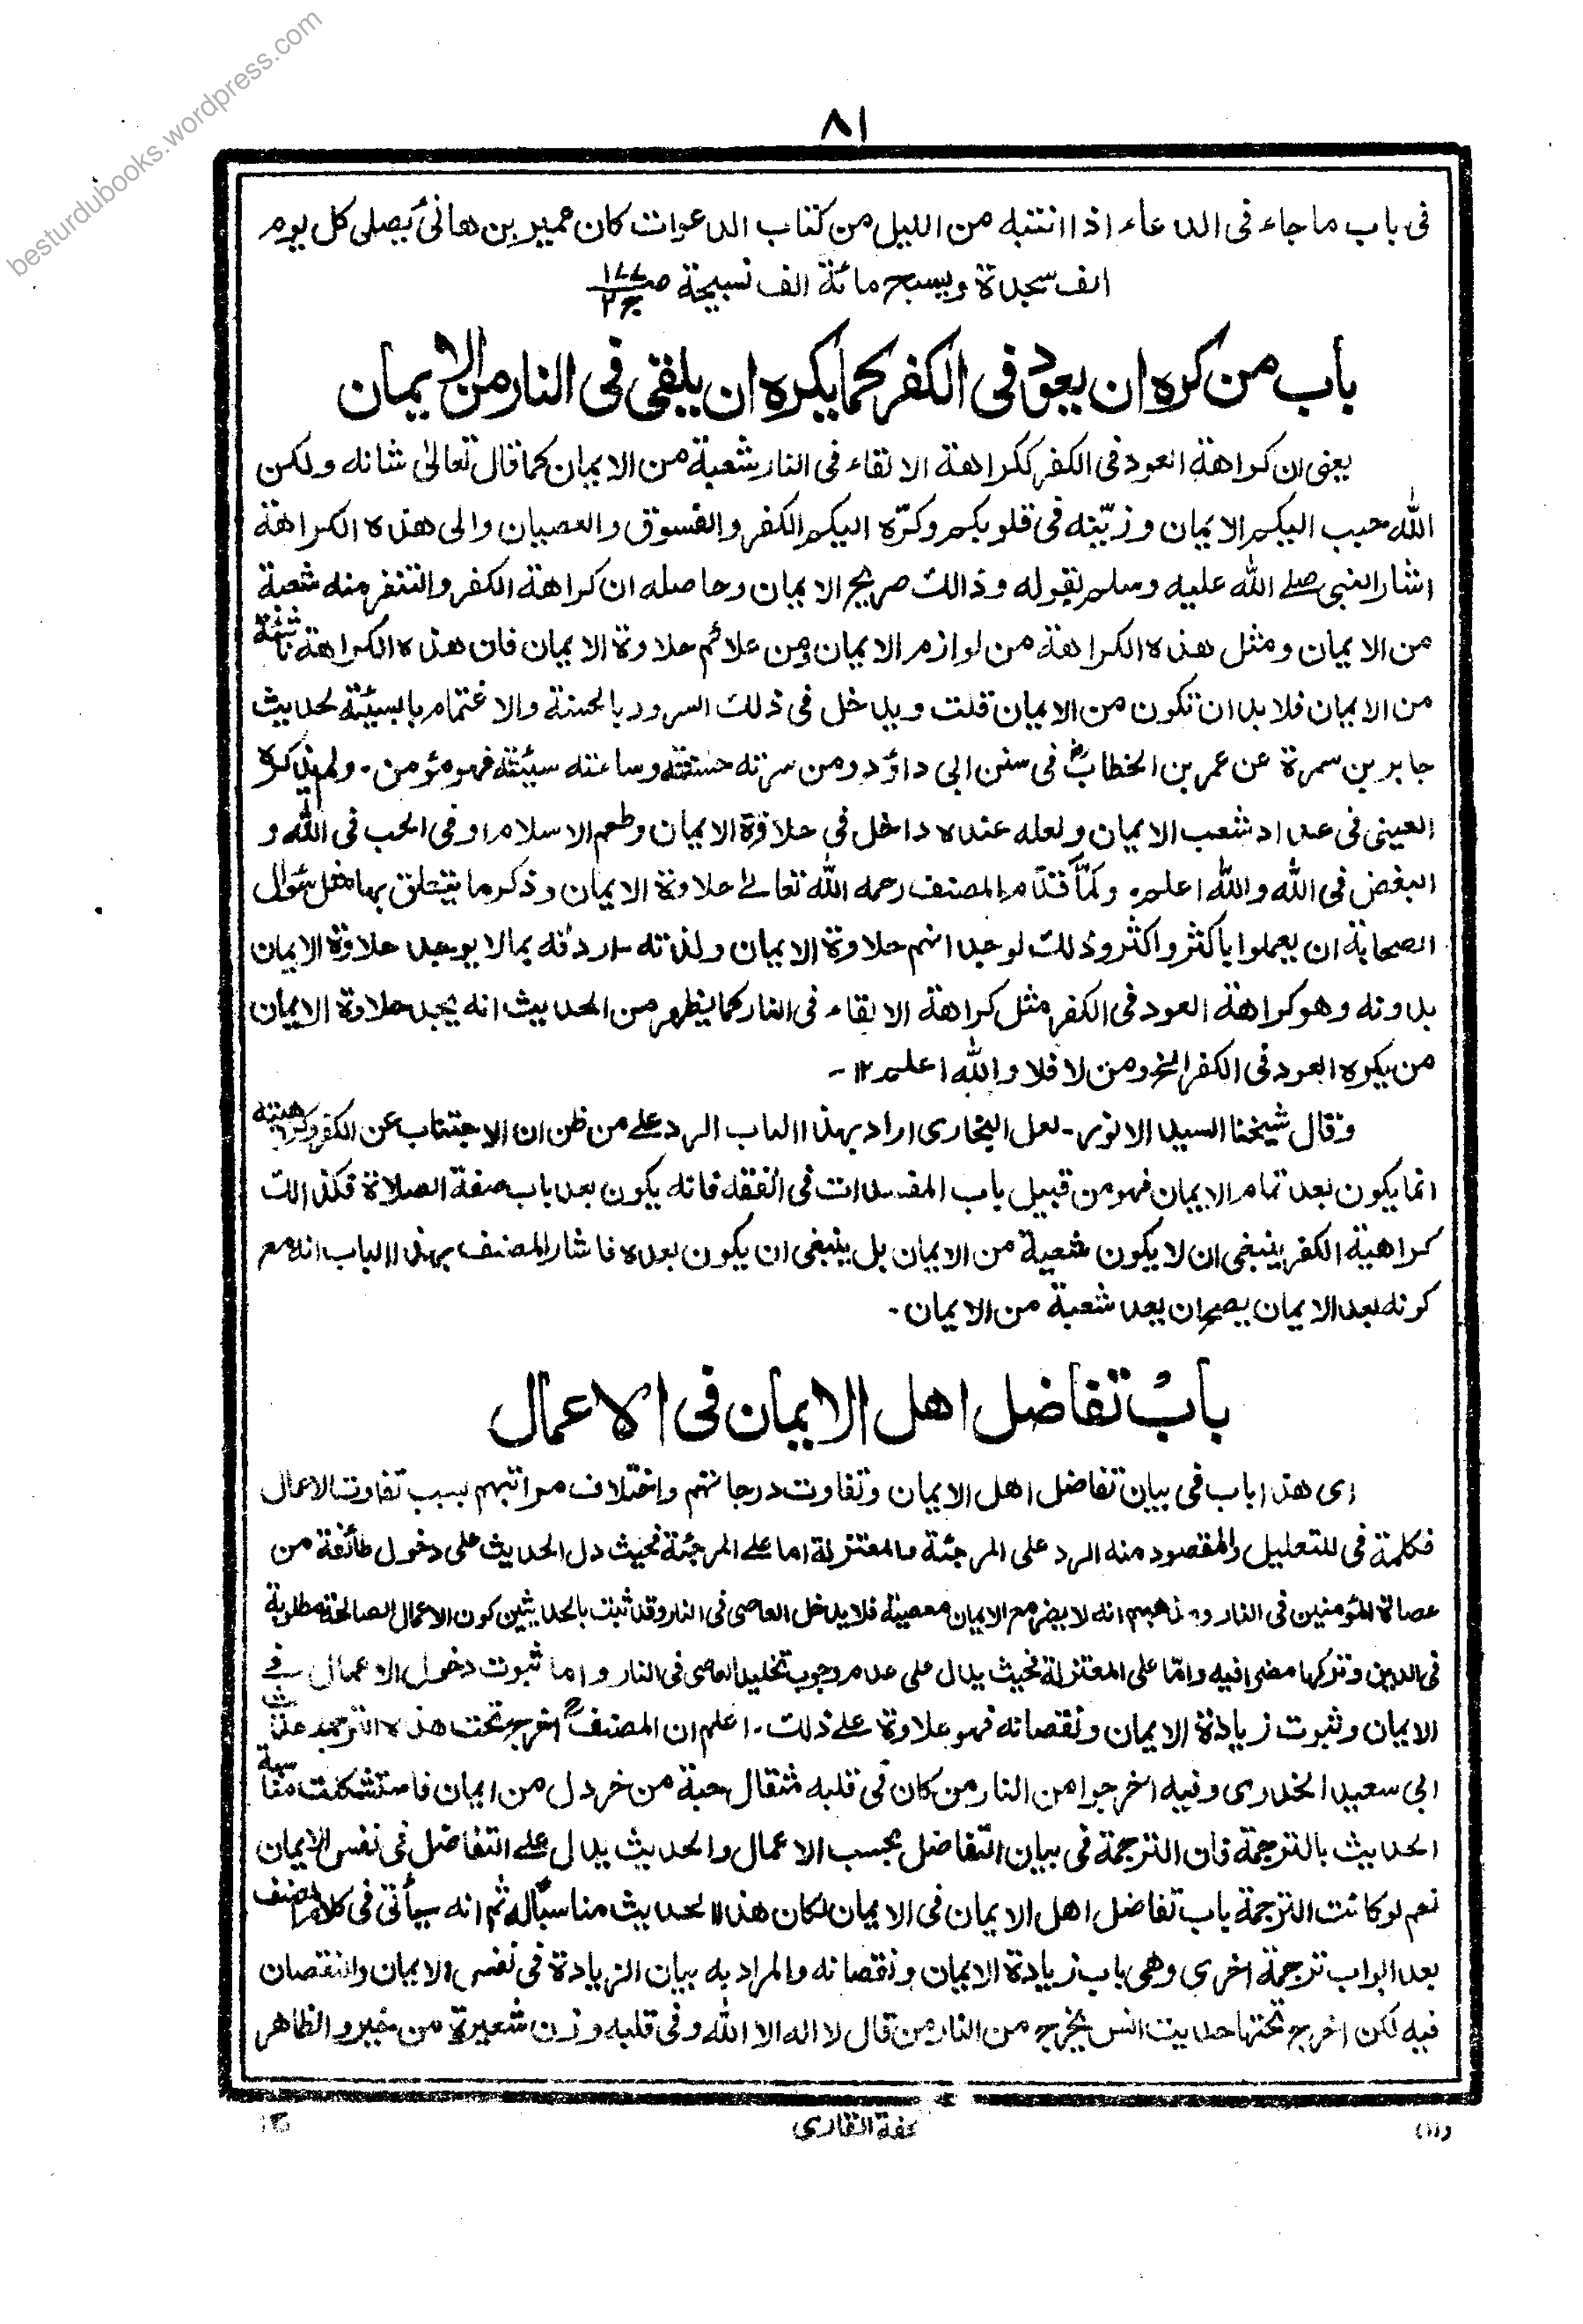 besturdubooks.wordpress.com
٨١
فی باب ما جاء فی الدعاء اذا انتبه من اللیل من کتاب الدعوات کان عمیر بن هانئ یصلی کل یوم
الف سجدة ویسبح مائة الف تسبیحة صـ ١٧٧ ج ٢
باب من کره ان یعود فی الکفر کما یکره ان یلقی فی النار من الایمان
یعنی ان کراهة العود فی الکفر ککراهة الالقاء فی النار شعبة من الایمان کما قال تعالیٰ شانه ولکن
الله حبب الیکم الایمان وزیّنه فی قلوبکم وکرّه الیکم الکفر والفسوق والعصیان والی هذه الکراهة
اشار النبی صلے الله علیه وسلم بقوله وذالک صریح الایمان وحاصله ان کراهة الکفر والتنفر منه شعبة
من الایمان ومثل هذه الکراهة من لوازم الایمان ومن علائم حلاوة الایمان فان هذه الکراهة ناشئة
من الایمان فلابد ان تکون من الایمان قلت ویدخل فی ذلک السرور بالحسنة والاغتمام بالسیئة لحدیث
جابر بن سمرة عن عمر بن الخطابؓ فی سنن ابی داؤد ومن سرته حسنته وساءته سیئته فهو مؤمن۔ ولم یذکره
العینی فی عداد شعب الایمان ولعله عنده داخل فی حلاوة الایمان وطعم الاسلام او فی الحب فی الله و
البغض فی الله والله اعلم۔ ولمّا قدّم المصنف رحمه الله تعالےٰ حلاوة الایمان وذکر ما یتعلق بها مثل سؤال
الصحابة ان یعملوا باکثر واکثر وذلک لوجدانهم حلاوة الایمان ولذته۔ اردفه بمالا یوجد حلاوة الایمان
بدونه وهو کراهة العود فی الکفر مثل کراهة الالقاء فی النار کما یظهر من الحدیث انه یجد حلاوة الایمان
من یکره العود فی الکفر الخ ومن لا فلا والله اعلم ١٢۔
وقال شیخنا السید الانور۔ لعل البخاری اراد بهذا الباب الرد علے من ظن ان الاجتناب عن الکفر وکراهیته
انما یکون بعد تمام الایمان فهو من قبیل باب المفسدات فی الفقه فانه یکون بعد باب صفة الصلاة فکذالک
کراهیة الکفر ینبغی ان لا یکون شعبة من الایمان بل ینبغی ان یکون بعده فاشار المصنف بهذا الباب انه مع
کونه بعد الایمان یصح ان یعد شعبة من الایمان۔
بابُ تفاضل اهل الایمان فی الاعمال
ای هذا باب فی بیان تفاضل اهل الایمان وتفاوت درجاتهم واختلاف مراتبهم بسبب تفاوت الاعمال
فکلمة فی للتعلیل والمقصود منه الرد علی المرجئة والمعتزلة اما علے المرجئة فحیث دل الحدیث علی دخول طائفة من
عصاة المؤمنین فی النار ومذهبهم انه لا یضر مع الایمان معصیة فلا یدخل العاصی فی النار وقد ثبت بالحدیثین کون الاعمال الصالحة مطلوبة
فی الدین وترکها مضرا فیه وامّا علی المعتزلة فحیث یدل علی عدم وجوب تخلید العاصی فی النار واما ثبوت دخول الاعمال فے
الایمان وثبوت زیادة الایمان ونقصانه فهو علاوة علے ذلک۔ اعلم ان المصنفؒ اخرج تحت هذه الترجمة حدیث
ابی سعید الخدری وفیه اخرجوا من النار من کان فی قلبه مثقال حبة من خردل من ایمان فاستشکلت مناسبة
الحدیث بالترجمة فان الترجمة فی بیان التفاضل بحسب الاعمال والحدیث یدل علے التفاضل فی نفس الایمان
نعم لو کانت الترجمة باب تفاضل اهل الایمان فی الایمان لکان هذا الحدیث مناسبًا له ثم انه سیأتی فی کلام المصنف
بعد ابواب ترجمة اخری وهی باب زیادة الایمان ونقصانه والمراد به بیان الزیادة فی نفس الایمان والنقصان
فیه لکن اخرج تحتها حدیث انس یخرج من النار من قال لا اله الا الله وفی قلبه وزن شعیرة من خیر والظاهر
(١١)
تحفة القاری